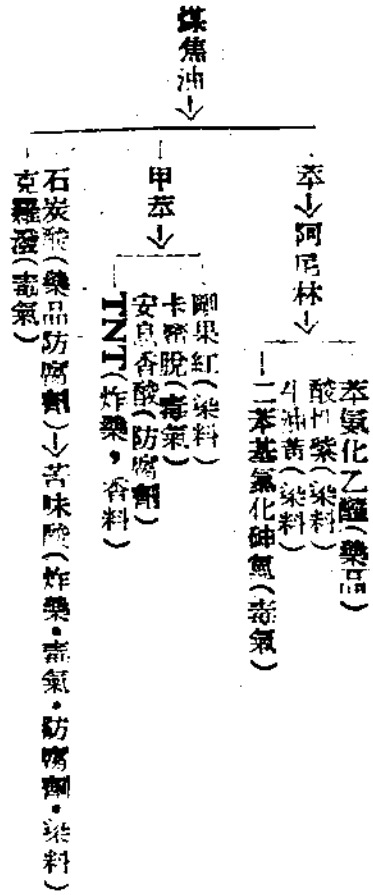 煤焦油↓
苯↓阿尼林↓
苯氨化乙醯(藥品)
酸性紫(染料)
牛油黃(染料)
二苯基氯化砷氣(毒氣)
甲苯↓
剛果紅(染料)
卡密脫(毒氣)
安息香酸(防腐劑)
TNT(炸藥，香料)
石炭酸(藥品防腐劑)↓苦味酸(炸藥・毒氣・防腐劑・染料)
克羅潑(毒氣)